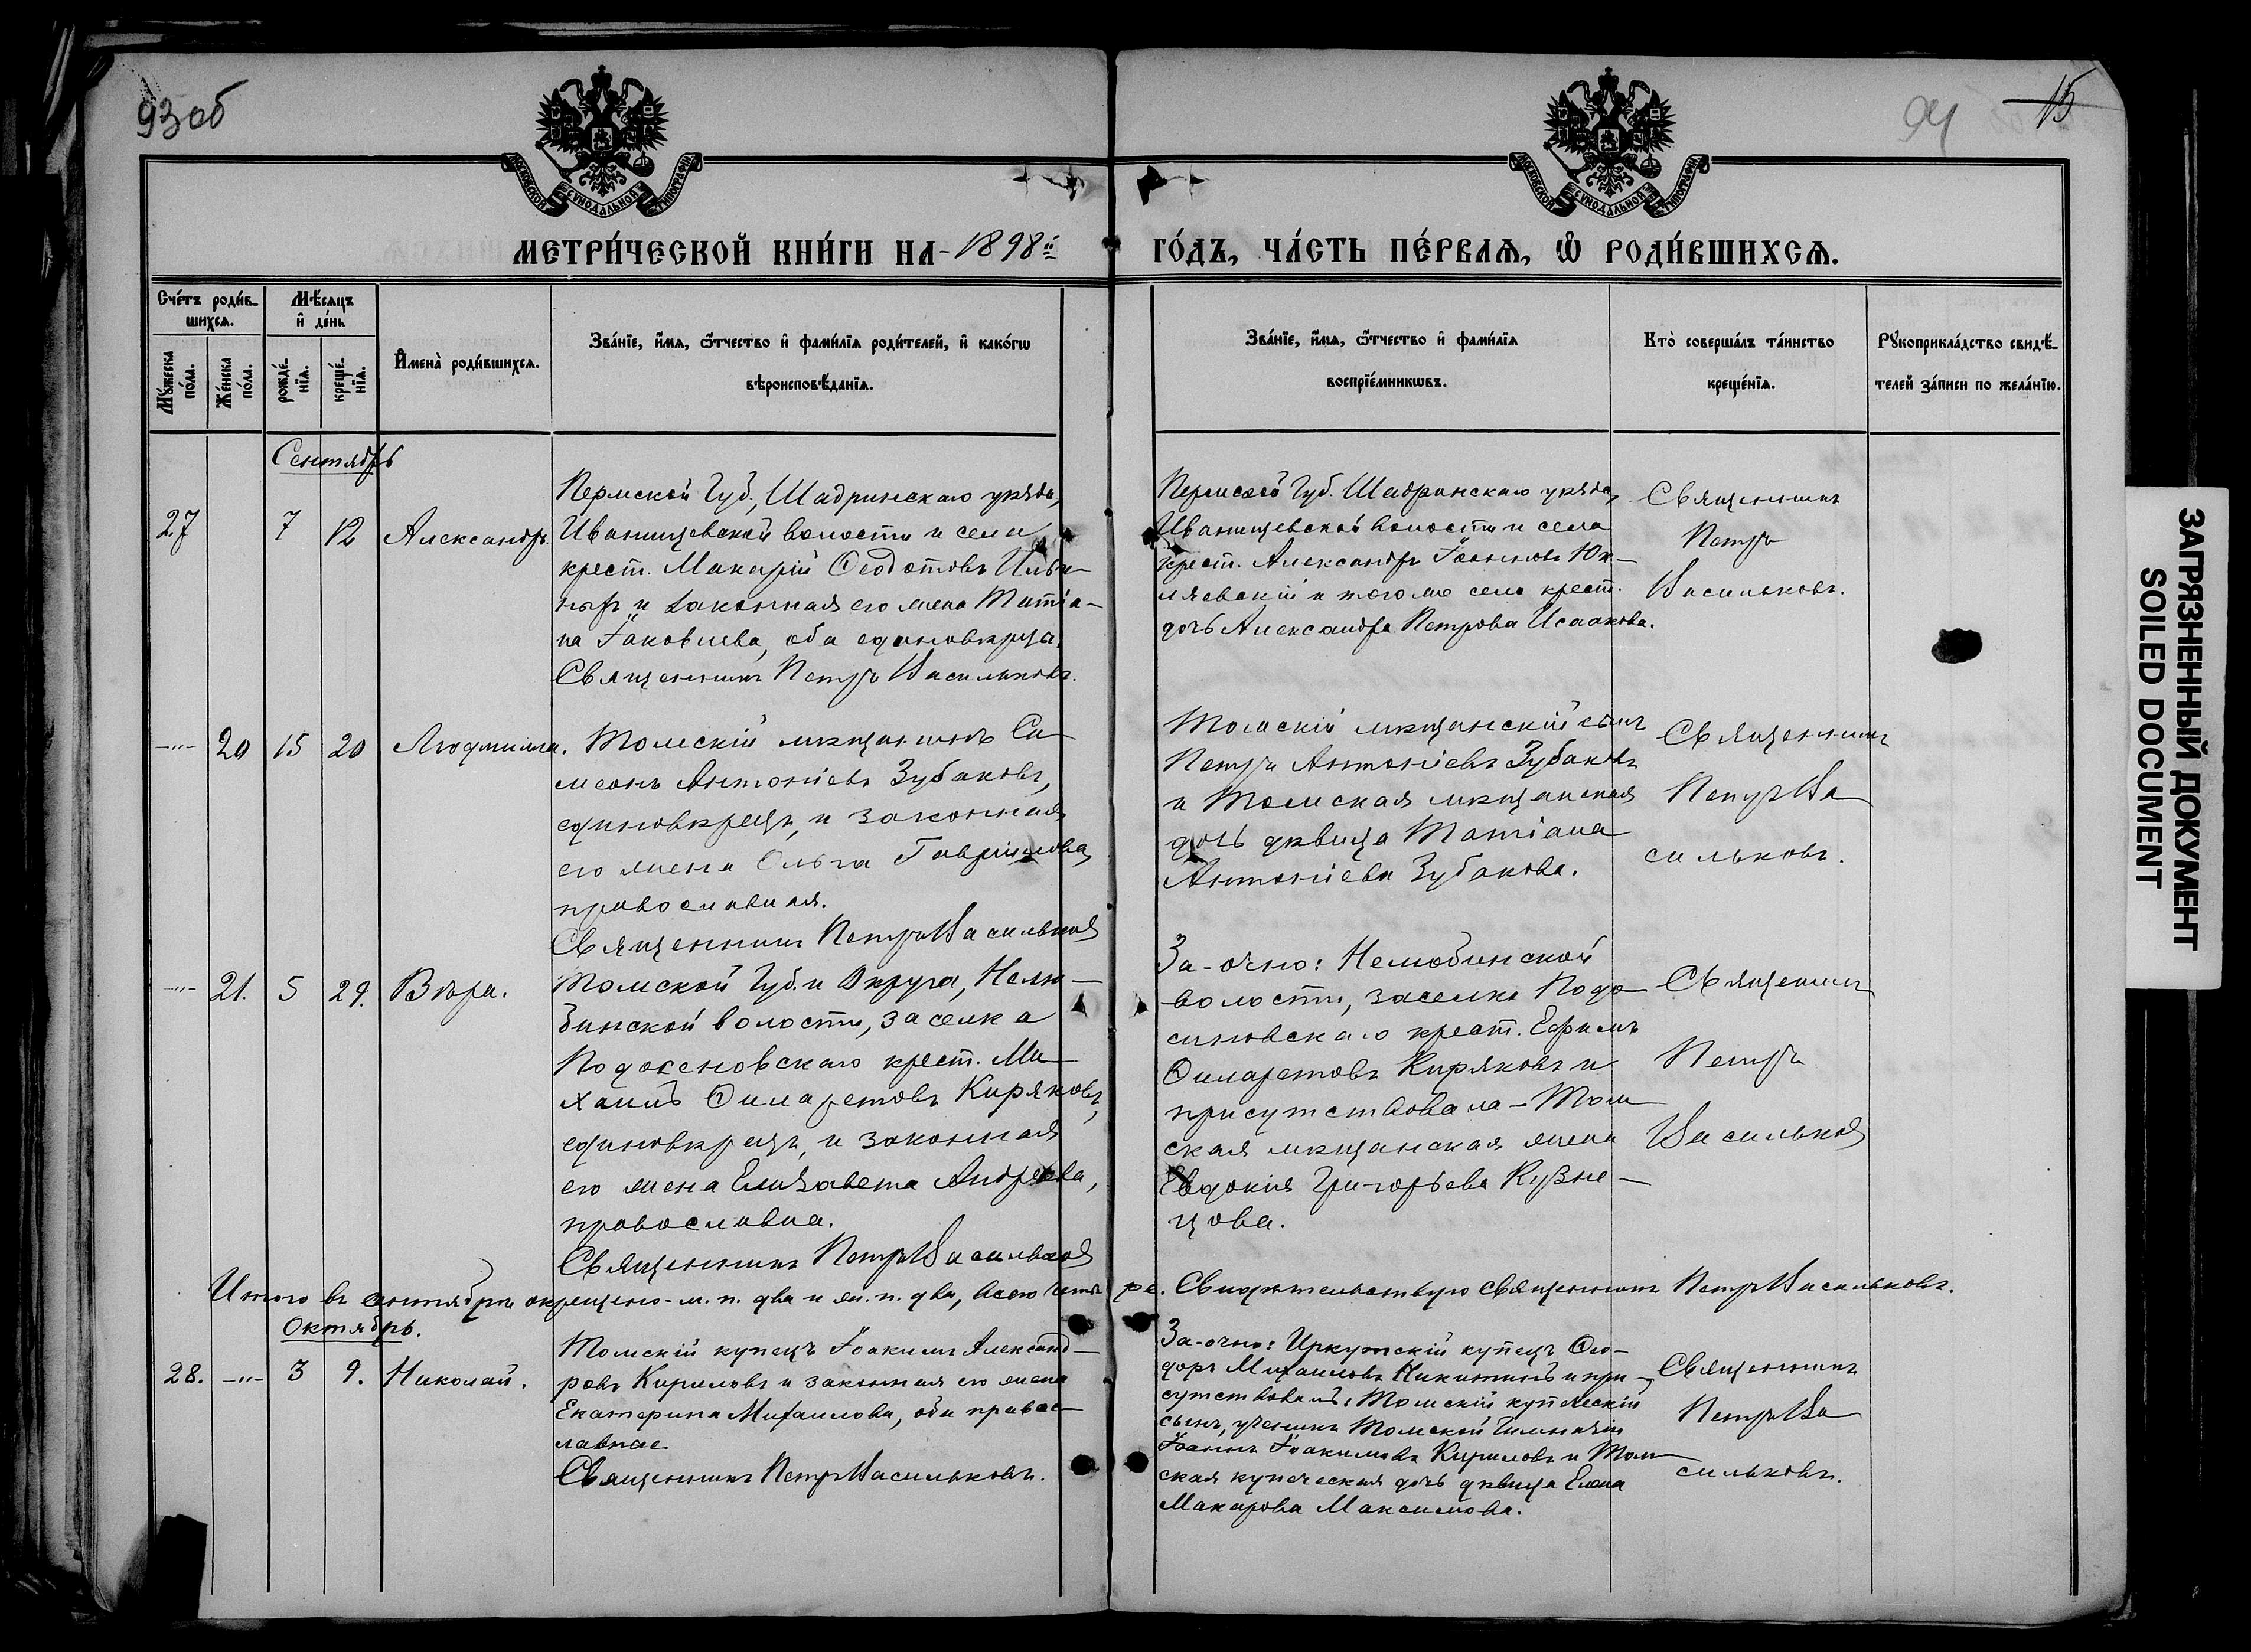 93об
94
15
МОСКОВСКОЙ СѴНОДАЛЬНОЙ ТИПОГРАФІИ
МОСКОВСКОЙ СѴНОДАЛЬНОЙ ТИПОГРАФІИ
МЕТРИ́ЧЕСКОЙ КНИ́ГИ НА 1898й ГО́ДЪ, ЧА́СТЬ ПЕ́РВАѦ, Ѡ҆ РОДИ́ВШИХСѦ.
Сче́тъ роди́в-
шихсѧ.
Мѣ́сѧцъ
и҆ де́нь
Мꙋ́жеска по́ла.
Же́нска по́ла.
рожде́-
нїѧ.
креще́-
нїѧ.
И҆мена̀ роди́вшихсѧ.
Зва́нїе, и҆́мѧ, ѻ҆́тчество и҆ фами́лїѧ роди́телей, и҆ како́гѡ
вѣроисповѣ́данїѧ.
Зва́нїе, и҆́мѧ, ѻ҆́тчество и҆ фами́лїѧ
воспрїе́мникѡвъ.
Кто̀ соверша́лъ та́инство
креще́нїѧ.
Рꙋкоприкла́дство свидѣ́-
телей за́писи по жела́нїю.
Сентябрь
27 7 12 Александръ.
Пермской Губ., Шадринскаго уѣзда,
Иванищевской волости и села
крест. Макарій Ѳеодотовъ Ильи-
ныхъ и законная его жена Татіа-
на Іаковлева, оба единовѣрцы.
Священникъ Петръ Васильковъ.
Пермской Губ. Шадринскаго уѣзда,
Иванищевской волости и села
крест. Александръ Іоанновъ Юк-
ляевскій и того же села крест.
дочь Александра Петрова Исаакова.
Священникъ
Петръ
Васильковъ.
-"- 20 15 20 Людмила.
Томскій мѣщанинъ Си-
меонъ Антоніевъ Зубаковъ,
единовѣрецъ, и законная
его жена Ольга Гавріилова,
православная.
Священникъ Петръ Васильковъ
Томскій мѣщанскій сынъ
Петръ Антоніевъ Зубаковъ
и Томская мѣщанская
дочь дѣвица Татіана
Антоніева Зубакова.
Священникъ
Петръ Ва
сильковъ.
-"- 21. 5 29. Вѣра.
Томской Губ. и Округа, Нелю-
бинской волости, заселка
Подосеновскаго крест. Ми-
хаилъ Филаретовъ Киряковъ,
единовѣрецъ, и законная
его жена Елизавета Андреева,
православна.
Священникъ Петръ Васильковъ
За-очно: Нелюбинской
волости, заселка Подо-
синовскаго крест. Ефимъ
Филаретовъ Киряковъ и
присутствовала - Том-
ская мѣщанская жена
Евдокія Григорьева Кузне-
цова.
Священникъ
Петръ
Васильковъ
Итого въ сентябрѣ окрещено - м. п. два и ж. п. два, всего четыре. Свидѣтельствую священникъ Петръ Васильковъ.
Октябрь.
28. -"- 3 9. Николай.
Томскій купецъ Іоакимъ Александ-
ровъ Кириловъ и законная его жена
Екатерина Михаилова, оба правос-
лавные
Священникъ Петръ Васильковъ.
За-очно: Иркутскій купецъ Ѳео-
доръ Михаиловъ Никитинъ и при-
сутствовалъ: Томскій купеческій
сынъ, ученикъ Томской Гимназіи
Іоаннъ Іоакимовъ Кириловъ и Том-
ская купеческая дочь дѣвица Елена
Макарова Максимова.
Священникъ
Петръ Ва
сильковъ.
ЗАГРЯЗНЕННЫЙ ДОКУМЕНТ
SOILED DOCUMENT